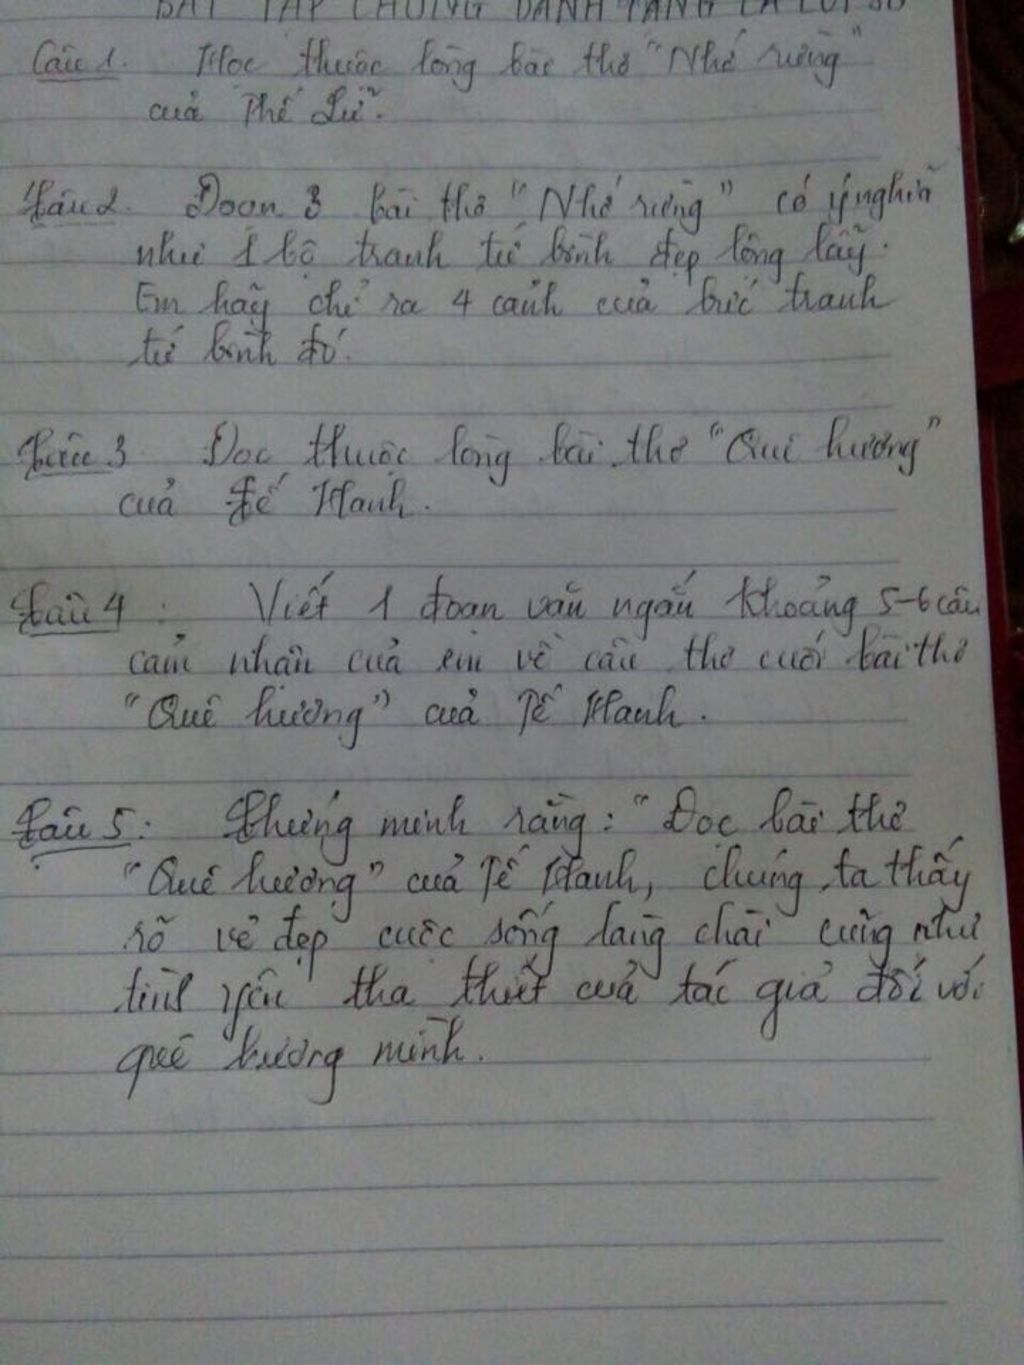 BÀI TẬP CHỐNG DÀNH TẶNG
Câu 1. Học thuộc lòng bài thơ "Nhớ rừng"
của Thế Lữ.
Câu 2. Đoạn 3 bài thơ "Nhớ rừng" có ý nghĩa
như 1 bộ tranh tứ bình đẹp lộng lẫy.
Em hãy chỉ ra 4 cảnh của bức tranh
tứ bình đó.
Câu 3 Đọc thuộc lòng bài thơ "Quê hương"
của Tế Hanh.
Câu 4: Viết 1 đoạn văn ngắn khoảng 5-6 câu
cảm nhận của em về câu thơ cuối bài thơ
"Quê hương" của Tế Hanh.
Câu 5: Chứng minh rằng: "Đọc bài thơ
"Quê hương" của Tế Hanh, chúng ta thấy
rõ vẻ đẹp cuộc sống làng chài cũng như
tình yêu tha thiết của tác giả đối với
quê hương mình.